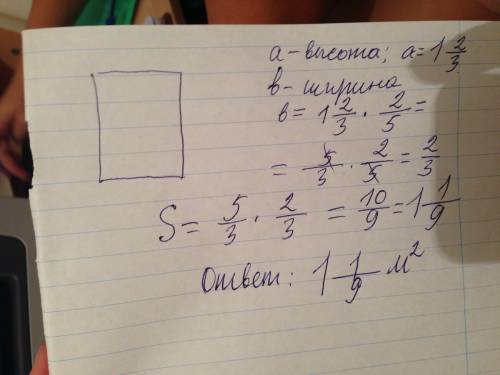 а - высота; а = 1 2/3
в - ширина
в = 1 2/3 · 2/5 =
= 5/3 · 2/5 = 2/3
S = 5/3 · 2/3 = 10/9 = 1 1/9
Ответ: 1 1/9 м²